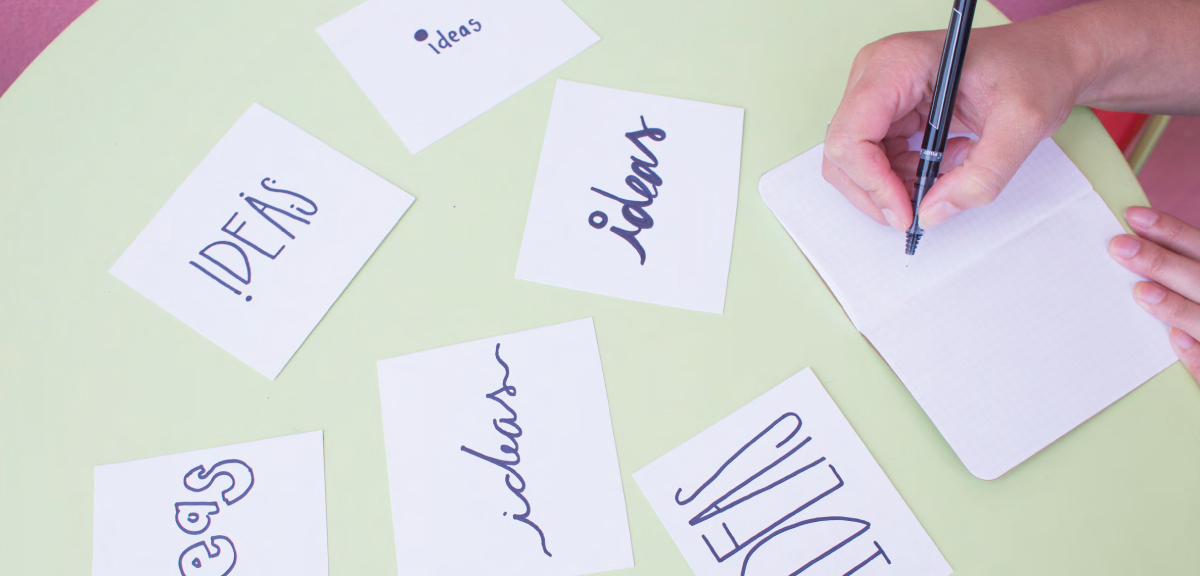 ideas
ideas
IDEAS
ideas
eas
IDEAS